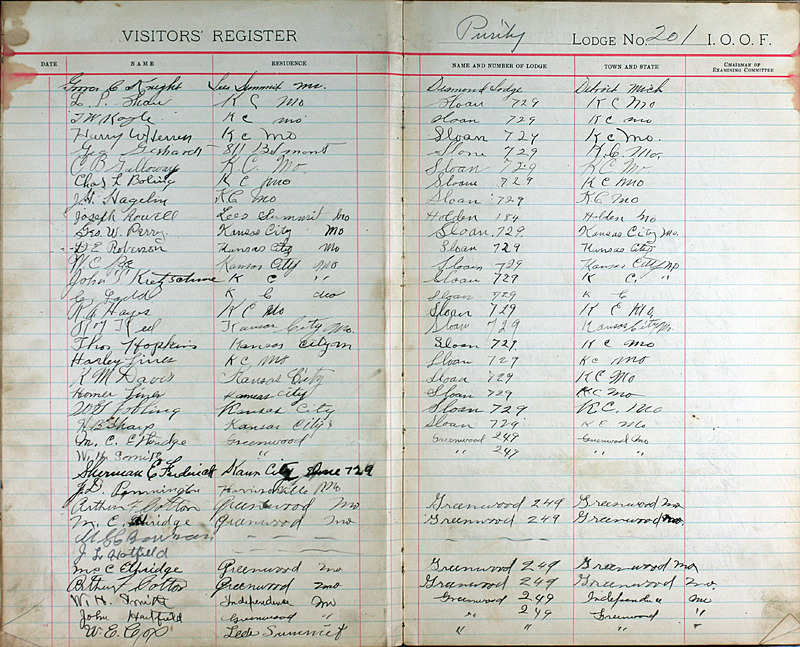 VISITORS' REGISTER
Purity LODGE NO. 201 I. O. O. F.
DATE NAME RESIDENCE NAME AND NUMBER OF LODGE TOWN AND STATE CHAIRMAN OF EXAMINING COMMITTEE
C Knight Lees Summit Mo. Desmond Lodge Detroit Mich
L. P. Shaw K C Mo Sloan 729 K C Mo
T W Kagle K C Mo Sloan 729 K C Mo
Harry W K C Mo Sloan 729 K C Mo.
Geo. Gerhardt 811 Belmont Sloan 729 K. C. Mo.
B Galloway K. C. Mo. Sloan 729 K C Mo
Chas L Boling K C Mo Sloan 729 K C Mo
J. H. Hagelin K C Mo Sloan 729 K C Mo
Joseph Kowell Lees Summit Mo Holden 184 Holden Mo
Geo. W. Perry. Kansas City Mo Sloan. 729 Kansas City Mo.
E Roberson Kansas City Mo Sloan 729 Kansas City
W. C. Kansas City Mo Sloan 729 Kansas City Mo
John T Kretschme K C " Sloan 729 K C. "
C Ladd K C Mo Sloan 729 K C
Hays K C Mo Sloan 729 K C Mo.
Roy Reed Kansas City Mo. Sloan 729 Kansas City Mo.
Thos Hopkins Kansas City M Sloan 729 K C Mo
Harley Lines K C Mo Sloan 729 K C Mo
K M Davis Kansas City Sloan 729 K C Mo
Homer Lines Kansas City Sloan 729 K C Mo
W G Boling Kansas City Sloan 729 K. C. Mo
H. B. Sharp Kansas City Sloan 729 K C Mo
M. C. Eldridge Greenwood Greenwood 249 Greenwood Mo
W. H. Smith " " " 249 " "
Sherman E Frederick Kans City Slone 729
J. D. Pennington Harrisonville Mo
Arthur L Cotton Greenwood Mo Greenwood 249 Greenwood Mo
M. C. Eldridge Greenwood Mo Greenwood 249 Greenwood Mo.
Bowman
J L Hatfield
M C Eldridge Greenwood Mo Greenwood 249 Greenwood Mo,
Arthur L Cotton Greenwood Mo Greenwood 249 Greenwood Mo.
W. H. Smith Independence Mo Greenwood 249 Independence Mo
John Hatfield Greenwood " " 249 Greenwood "
W. E. Cox Lees Summit " " " "